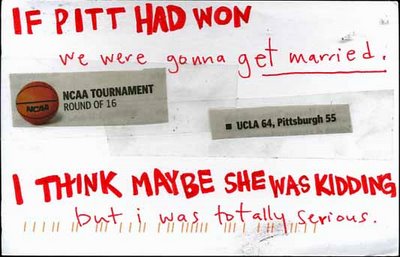 IF PITT HAD WON
we were gonna get married.
NCAA
NCAA TOURNAMENT
ROUND OF 16
■ UCLA 64, Pittsburgh 55
I THINK MAYBE SHE WAS KIDDING
but i was totally serious.